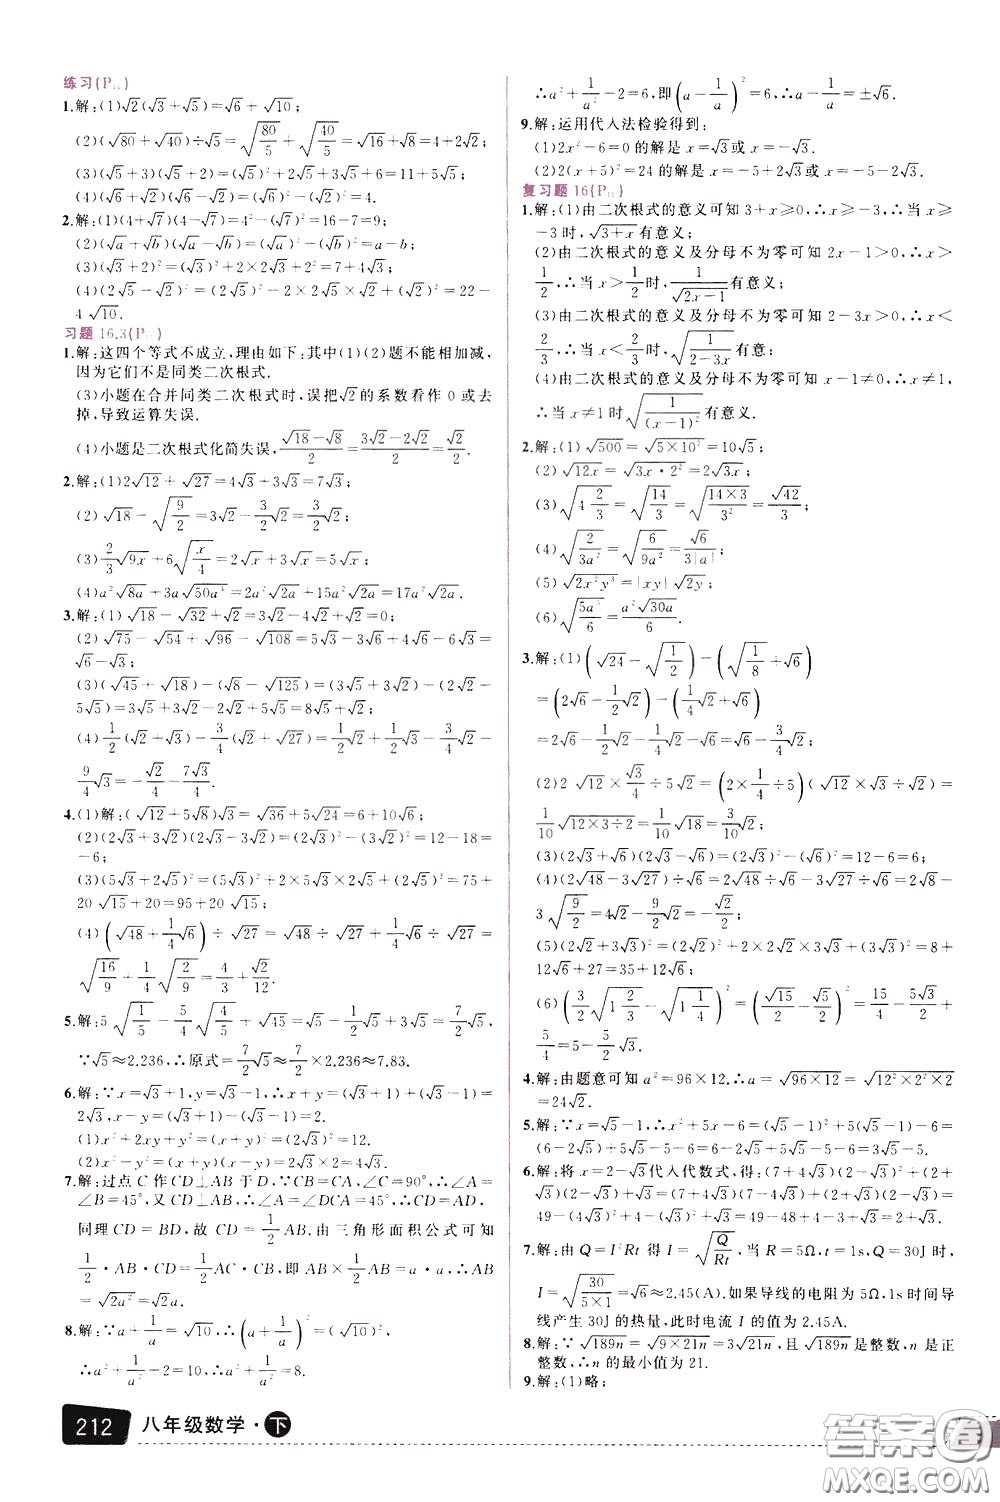 练习(P₁₄)
1.解:(1)√2(√3+√5)=√6+√10;
(2)(√80+√40)÷√5=√(80/5)+√(40/5)=4+2√2;
(3)(√5+3)(√5+2)=(√5)²+2√5+3√5+6=11+5√5;
(4)(√6+√2)(√6-√2)=(√6)²-(√2)²=4.
2.解:(1)(4+√7)(4-√7)=4²-(√7)²=16-7=9;
(2)(√a+√b)(√a-√b)=(√a)²-(√b)²=a-b;
(3)(√3+2)²=(√3)²+2×2×√3+2²=7+4√3;
(4)(2√5-√2)²=(2√5)²-2×2√5×√2+(√2)²=22-
4√10.
习题 16.3(P₁₅)
1.解:这四个等式不成立,理由如下:其中(1)(2)题不能相加减,
因为它们不是同类二次根式.
(3)小题在合并同类二次根式时,误把√2的系数看作 0 或去
掉,导致运算失误.
(4)小题是二次根式化简失误,(√18-√8)/2=(3√2-2√2)/2=√2/2.
2.解:(1)2√12+√27=4√3+3√3=7√3;
(2)√18-√(9/2)=3√2-3/2√2=3/2√2;
(3)2/3√9x+6√(x/4)=2√x+3√x=5√x;
(4)a²√8a+3a√50a³=2a²√2a+15a²√2a=17a²√2a.
3.解:(1)√18-√32+√2=3√2-4√2+√2=0;
(2)√75-√54+√96-√108=5√3-3√6+4√6-6√3=
√6-√3;
(3)(√45+√18)-(√8-√125)=(3√5+3√2)-(2√2-
5√5)=3√5+3√2-2√2+5√5=8√5+√2;
(4)1/2(√2+√3)-3/4(√2+√27)=1/2√2+1/2√3-3/4√2-
9/4√3=-√2/4-7√3/4.
4.(1)解:(√12+5√8)√3=√36+5√24=6+10√6;
(2)(2√3+3√2)(2√3-3√2)=(2√3)²-(3√2)²=12-18=
-6;
(3)(5√3+2√5)²=(5√3)²+2×5√3×2√5+(2√5)²=75+
20√15+20=95+20√15;
(4)(√48+1/4√6)÷√27=√48÷√27+1/4√6÷√27=
√(16/9)+1/4√(2/9)=4/3+√2/12.
5.解:5√(1/5)-5/4√(4/5)+√45=√5-1/2√5+3√5=7/2√5,
∵√5≈2.236,∴原式=7/2√5≈7/2×2.236≈7.83.
6.解:∵x=√3+1,y=√3-1,∴x+y=(√3+1)+(√3-1)=
2√3,x-y=(√3+1)-(√3-1)=2.
(1)x²+2xy+y²=(x+y)²=(2√3)²=12.
(2)x²-y²=(x+y)(x-y)=2√3×2=4√3.
7.解:过点 C 作 CD⊥AB 于 D,∵CB=CA,∠C=90°,∴∠A=
∠B=45°,又 CD⊥AB,∴∠A=∠DCA=45°,∴CD=AD,
同理 CD=BD,故 CD=1/2AB.由三角形面积公式可知
1/2·AB·CD=1/2AC·CB,即1/2AB·1/2AB=1/2a·a,∴AB
=√2a²=√2a.
8.解:∵a+1/a=√10,∴(a+1/a)²=(√10)²,
∴a²+1/a²+2=10,∴a²+1/a²=8.
∴a²+1/a²-2=6,即(a-1/a)²=6,∴a-1/a=±√6.
9.解:运用代入法检验得到:
(1)2x²-6=0 的解是 x=√3或 x=-√3.
(2)2(x+5)²=24 的解是 x=-5+2√3或 x=-5-2√3.
复习题 16(P₁₉)
1.解:(1)由二次根式的意义可知 3+x≥0,∴x≥-3,∴当 x≥
-3 时,√(3+x)有意义;
(2)由二次根式的意义及分母不为零可知 2x-1>0,∴x>
1/2,∴当 x>1/2时,1/√(2x-1)有意义;
(3)由二次根式的意义及分母不为零可知 2-3x>0,∴x<
2/3,∴当 x<2/3时,1/√(2-3x)有意义;
(4)由二次根式的意义及分母不为零可知 x-1≠0,∴x≠1,
∴当 x≠1 时√(1/(x-1)²)有意义.
2.解:(1)√500=√(5×10²)=10√5;
(2)√12x=√(3x·2²)=2√3x;
(3)√(4 2/3)=√(14/3)=√(14×3/3²)=√42/3;
(4)√(2/3a²)=√(6/9a²)=√6/3|a|;
(5)√(2x²y³)=|xy|√2y;
(6)√(5a⁵/6)=a²√30a/6.
3.解:(1)(√24-√(1/2))-(√(1/8)+√6)
=(2√6-1/2√2)-(1/4√2+√6)
=2√6-1/2√2-1/4√2-√6=√6-3/4√2;
(2)2√12×√3/4÷5√2=(2×1/4÷5)(√12×√3÷√2)=
1/10√(12×3÷2)=1/10√18=3/10√2;
(3)(2√3+√6)(2√3-√6)=(2√3)²-(√6)²=12-6=6;
(4)(2√48-3√27)÷√6=2√48÷√6-3√27÷√6=2√8-
3√(9/2)=4√2-9/2√2=-√2/2;
(5)(2√2+3√3)²=(2√2)²+2×2√2×3√3+(3√3)²=8+
12√6+27=35+12√6;
(6)(3/2√(1 2/3)-√(1 1/4))²=(√15/2-√5/2)²=15/4-5√3/2+
5/4=5-5/2√3.
4.解:由题意可知 a²=96×12.∴a=√(96×12)=√(12²×2²×2)
=24√2.
5.解:∵x=√5-1,∴x²+5x-6=(√5-1)²+5(√5-1)-6=
(6-2√5)+5√5-5-6=6-2√5+5√5-5-6=3√5-5.
6.解:将 x=2-√3代入代数式,得:(7+4√3)(2-√3)²+(2+
√3)(2-√3)+√3=(7+4√3)(7-4√3)+(2+√3)(2-√3)+√3=
49-(4√3)²+4-(√3)²+√3=49-48+4-3+√3=2+√3.
7.解:由 Q=I²Rt 得 I=√(Q/Rt),当 R=5Ω,t=1s,Q=30J 时
I=√(30/5×1)=√6≈2.45(A).如果导线的电阻为 5Ω,1s 时间导
线产生 30J 的热量,此时电流 I 的值为 2.45A.
8.解:∵√189n=√(9×21n)=3√21n,且√189n是整数,n 是正
整数,∴n 的最小值为 21.
9.解:(1)略;
212 八年级数学·下
答案卷
MXQE.COM